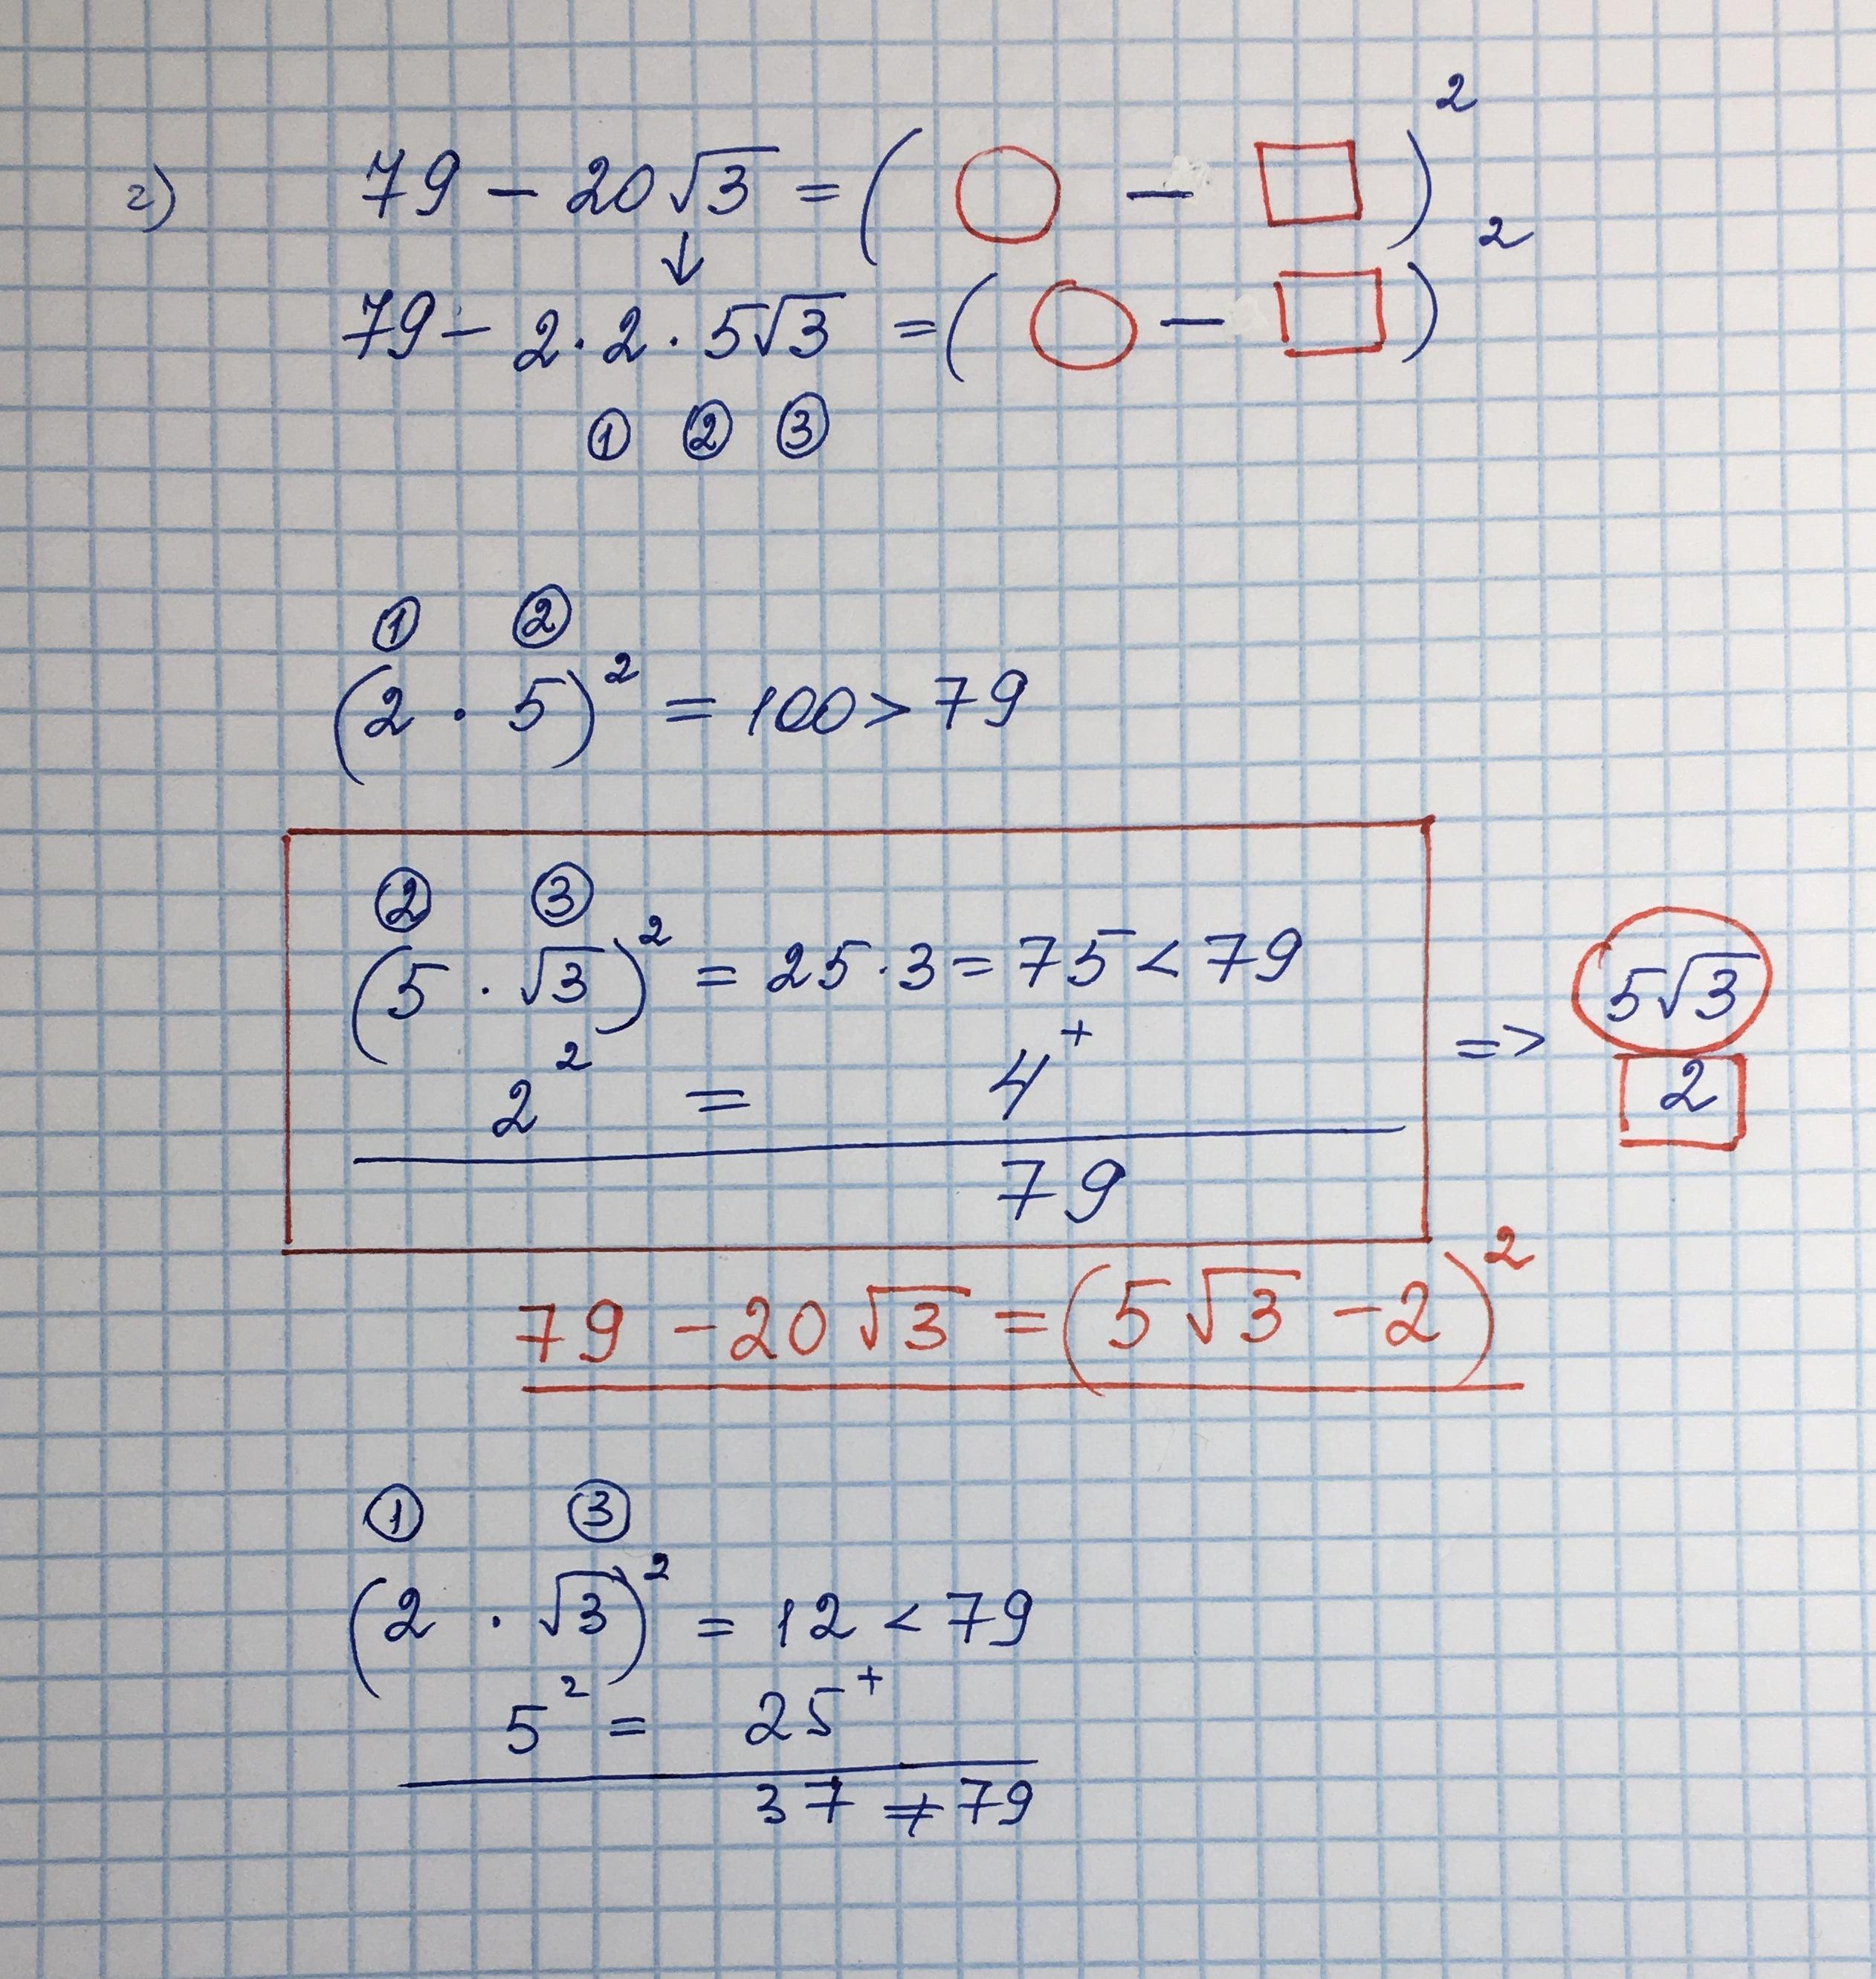 г) 79 − 20√3 = ( ○ − □ )²
↓
79 − 2·2·5√3 = ( ○ − □ )²
① ② ③
① ②
(2 · 5)² = 100 > 79
② ③
(5 · √3)² = 25·3 = 75 < 79
2² = 4⁺
79
=> 5√3
2
79 − 20√3 = (5√3 − 2)²
① ③
(2 · √3)² = 12 < 79
5² = 25⁺
37 ≠ 79